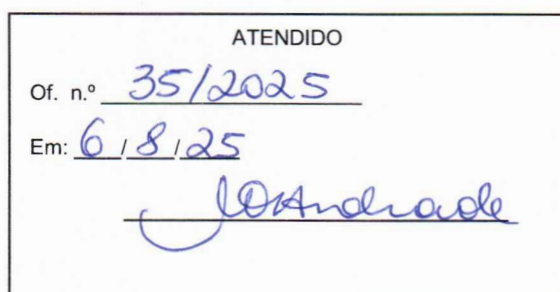 ATENDIDO
Of. n.º 35/2025
Em: 6/8/25
JOAndrade